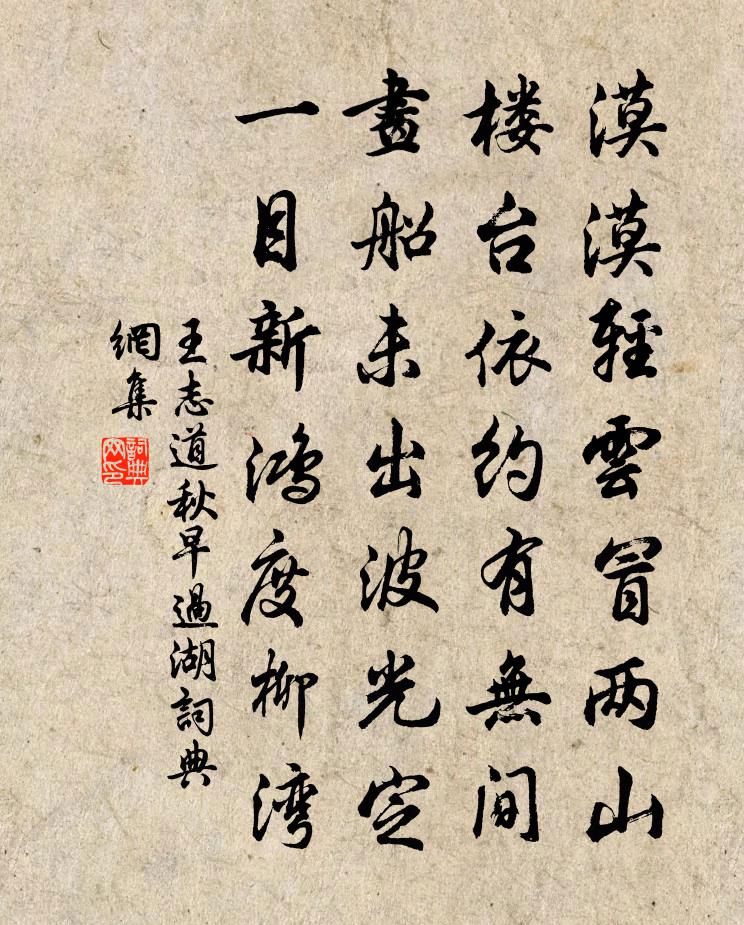 漠漠輕雲冒两山
楼台依約有無間
畫船未出波光定
一目新鴻度柳湾
王志道秋早過湖詞典
網集
詞典
网印